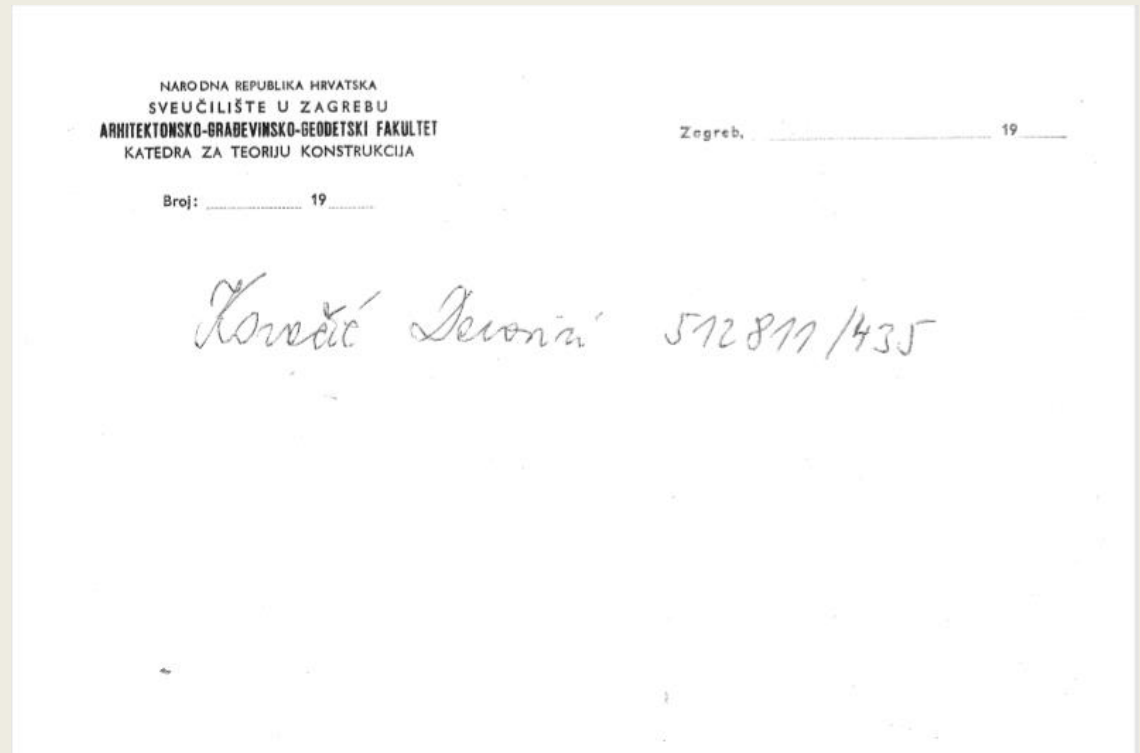 NARODNA REPUBLIKA HRVATSKA
SVEUČILIŠTE U ZAGREBU
ARHITEKTONSKO-GRAĐEVINSKO-GEODETSKI FAKULTET
KATEDRA ZA TEORIJU KONSTRUKCIJA
Zagreb, 19
Broj: 19
Kovačić 512811/435